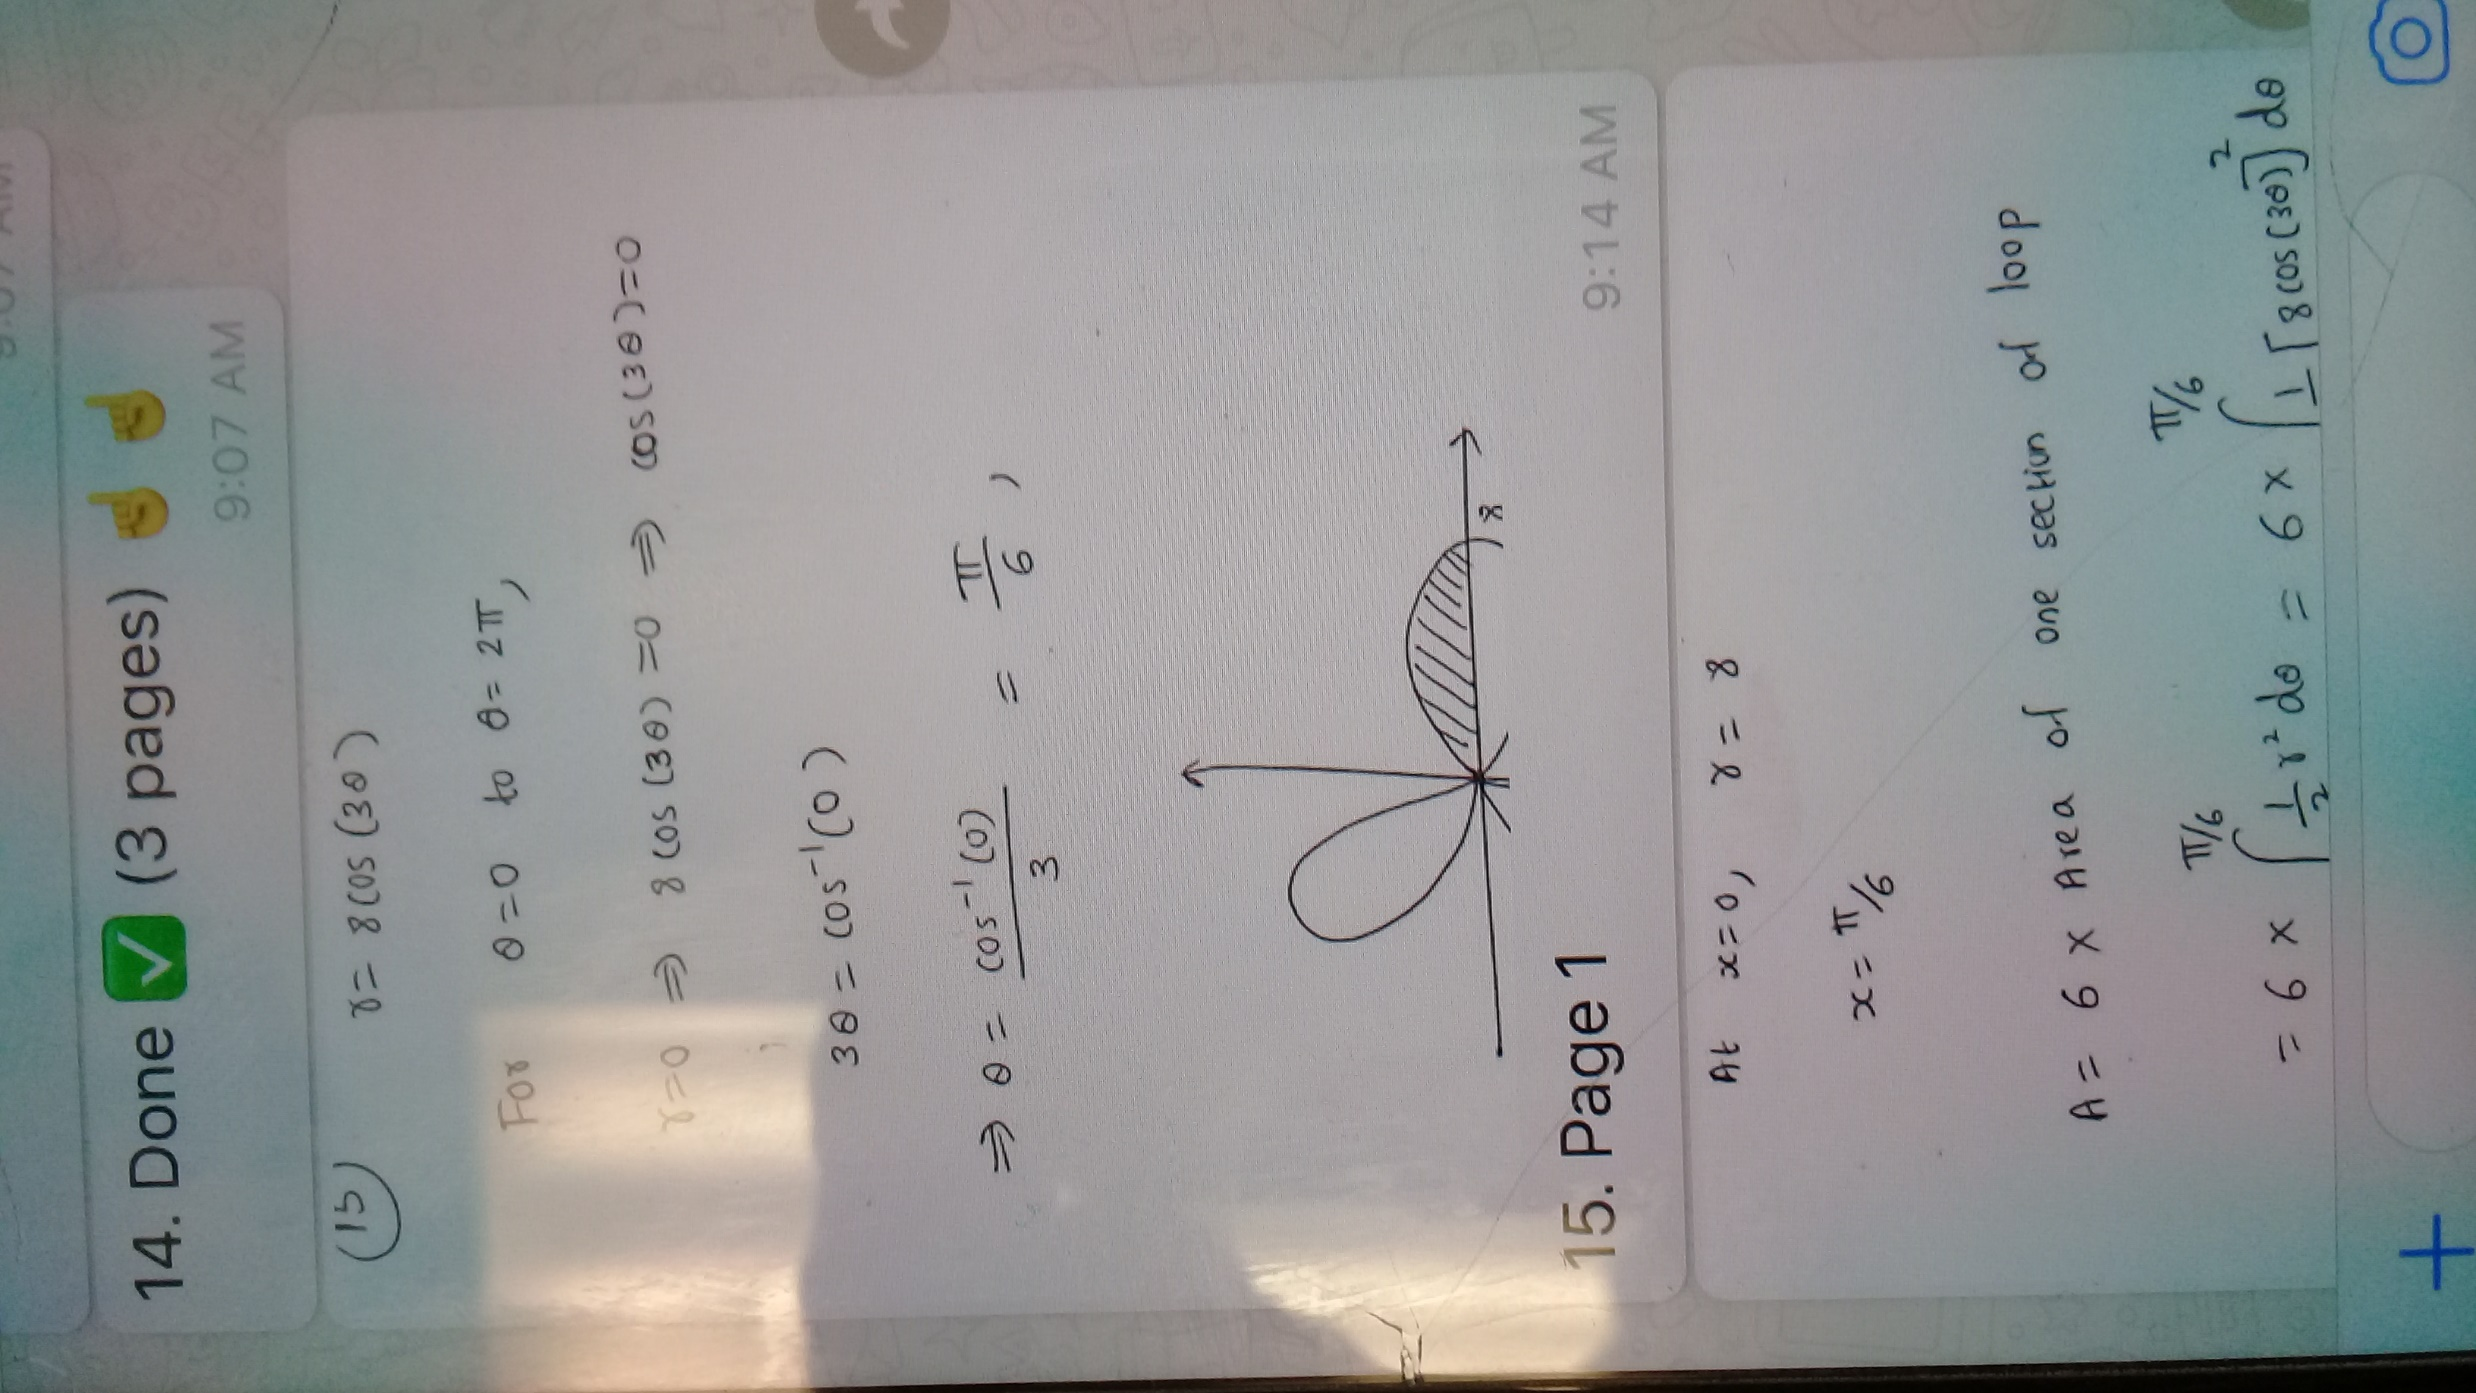 14. Done ✅ (3 pages) ☝️ ☝️
9:07 AM
(15) r = 8 cos (3θ)
For θ = 0 to θ = 2π,
r = 0 ⇒ 8 cos (3θ) = 0 ⇒ cos (3θ) = 0
3θ = cos⁻¹ (0)
⇒ θ = cos⁻¹ (0) / 3 = π/6 ,
8
15. Page 1
9:14 AM
At x = 0, r = 8
x = π/6
A = 6 x Area of one section of loop
= 6 x ∫ π/6 1/2 r² dθ = 6 x ∫ π/6 1 [8 cos (3θ)]² dθ